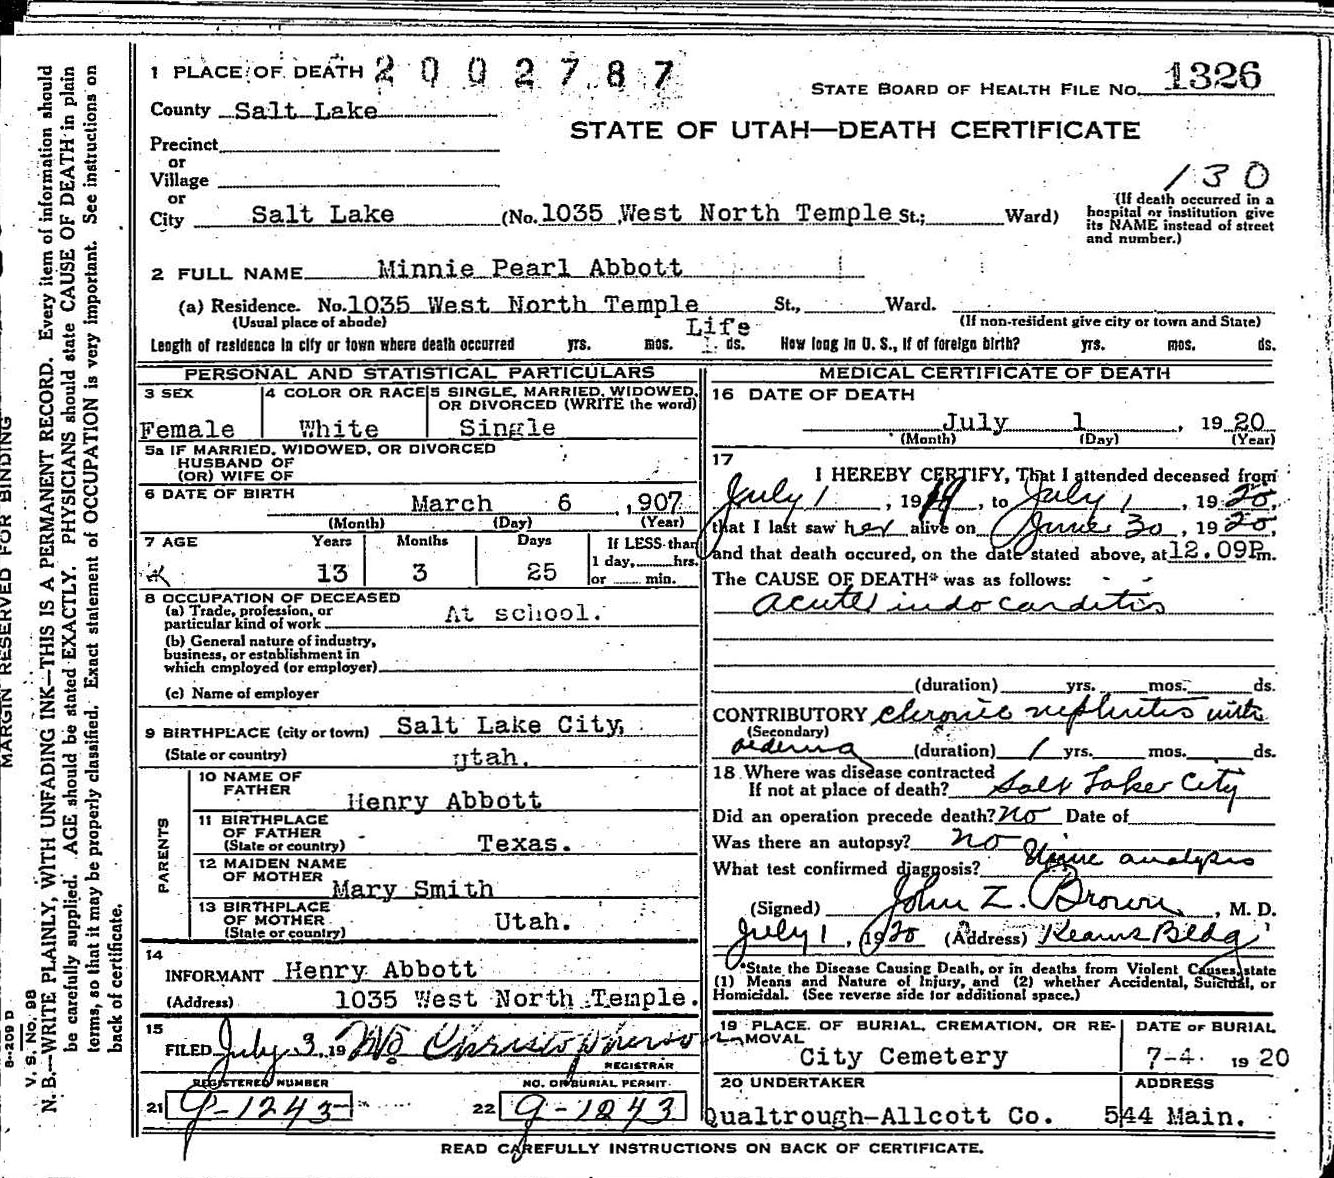 1 PLACE OF DEATH 2 0 0 2 7 8 7
STATE BOARD OF HEALTH FILE NO. 1326
County Salt Lake
STATE OF UTAH—DEATH CERTIFICATE
Precinct
or
Village
130
or
City Salt Lake (No. 1035 West North Temple St.; Ward)
(If death occurred in a
hospital or institution give
its NAME instead of street
and number.)
2 FULL NAME Minnie Pearl Abbott
(a) Residence. No. 1035 West North Temple St., Ward.
(Usual place of abode) (If non-resident give city or town and State)
Life
Length of residence in city or town where death occurred yrs. mos. ds. How long in U. S., if of foreign birth? yrs. mos. ds.
PERSONAL AND STATISTICAL PARTICULARS
3 SEX 4 COLOR OR RACE 5 SINGLE, MARRIED, WIDOWED,
OR DIVORCED (WRITE the word)
Female White Single
5a IF MARRIED, WIDOWED, OR DIVORCED
HUSBAND OF
(OR) WIFE OF
6 DATE OF BIRTH March 6 , 907
(Month) (Day) (Year)
7 AGE Years Months Days If LESS than
1 day, hrs.
13 3 25 or min.
8 OCCUPATION OF DECEASED
(a) Trade, profession, or
particular kind of work At school.
(b) General nature of industry,
business, or establishment in
which employed (or employer)
(c) Name of employer
9 BIRTHPLACE (city or town) Salt Lake City,
(State or country) Utah.
PARENTS
10 NAME OF
FATHER Henry Abbott
11 BIRTHPLACE
OF FATHER
(State or country) Texas.
12 MAIDEN NAME
OF MOTHER
Mary Smith
13 BIRTHPLACE
OF MOTHER
(State or country) Utah.
14
INFORMANT Henry Abbott
(Address) 1035 West North Temple.
15
FILED July 3, 19 Christopherso
REGISTRAR
REGISTERED NUMBER NO. OF BURIAL PERMIT
21 g-1243 22 g-1243
MEDICAL CERTIFICATE OF DEATH
16 DATE OF DEATH
July 1 , 19 20
(Month) (Day) (Year)
17
I HEREBY CERTIFY, That I attended deceased from
July 1 , 19 19, to July 1 , 19 20,
that I last saw her alive on June 30 , 19 20,
and that death occured, on the date stated above, at 12.09P.m.
The CAUSE OF DEATH* was as follows:
acute indocarditis
(duration) yrs. mos. ds.
CONTRIBUTORY chronic nephritis with
(Secondary)
oedema (duration) 1 yrs. mos. ds.
18 Where was disease contracted
If not at place of death? Salt Lake City
Did an operation precede death? No Date of
Was there an autopsy? No
What test confirmed diagnosis? Urine analysis
(Signed) John Z. Brown, M. D.
July 1, 1920 (Address) Kearns Bldg
*State the Disease Causing Death, or in deaths from Violent Causes, state
(1) Means and Nature of Injury, and (2) whether Accidental, Suicidal, or
Homicidal. (See reverse side for additional space.)
19 PLACE OF BURIAL, CREMATION, OR RE-
MOVAL
City Cemetery
DATE OF BURIAL
7-4- 19 20
20 UNDERTAKER ADDRESS
Qualtrough-Allcott Co. 544 Main.
READ CAREFULLY INSTRUCTIONS ON BACK OF CERTIFICATE.
MARGIN RESERVED FOR BINDING
V. S. No. 98
8-209 D
N. B.—WRITE PLAINLY, WITH UNFADING INK—THIS IS A PERMANENT RECORD. Every item of information should
be carefully supplied. AGE should be stated EXACTLY. PHYSICIANS should state CAUSE OF DEATH in plain
terms, so that it may be properly classified. Exact statement of OCCUPATION is very important. See instructions on
back of certificate.